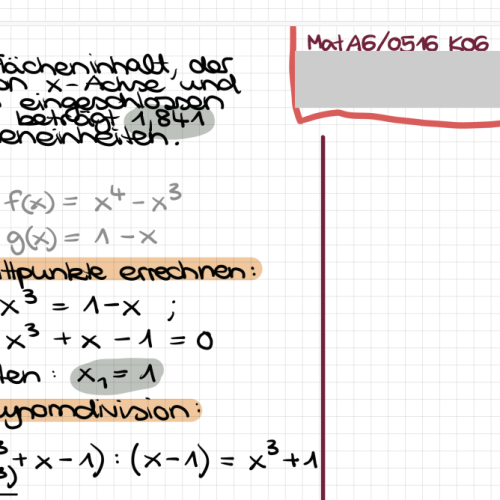 MatA6/0516 K06
ächeninhalt, der
on x-Achse und
eingeschlossen
beträgt 1,841
eneinheiten.
f(x) = x⁴ - x³
g(x) = 1 - x
ttpunkte errechnen:
x³ = 1-x ;
x³ + x - 1 = 0
ten: x₁ = 1
ynomdivision:
³ + x - 1) : (x-1) = x³+1
³)